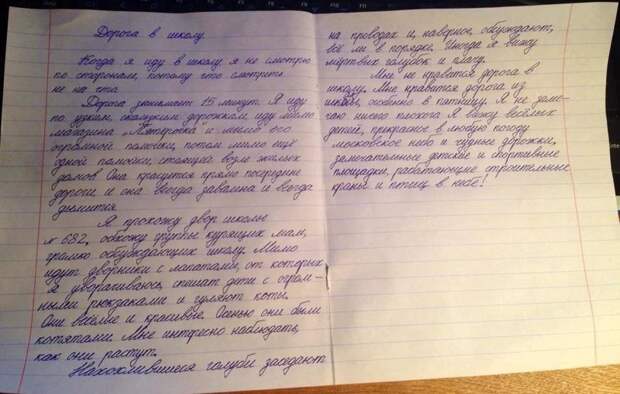 Дорога в школу.
Когда я иду в школу я не смотрю
по сторонам, потому что смотреть
не на что.
Дорога занимает 15 минут. Я иду
по узким, скользким дорожкам, иду мимо
магазина "Пятёрочка" и мимо его
огромной помойки, потом мимо ещё
одной помойки, стоящей возле жилых
домов. Она кращется прямо посередине
дороги и она всегда завалина и всегда
дымится.
Я прохожу двор школы
№ 682, обхожу группы курящих мам,
громко обсуждающих школу. Мимо
идут дворники с лопатами, от которых
я уворачиваюсь, спешат дети с огром-
ными рюкзаками и гуляют коты.
Они весёлые и красивые. Осенью они были
котятами. Мне интересно наблюдать,
как они растут.
Нахохлившиеся голуби заседают
на проводах и, наверное, обсуждают,
всё ли в порядке. Иногда я вижу
мёртвых голубей и плачу.
Мне не нравится дорога в
школу. Мне нравится дорога из
школы, особенно в пятницу. Я не заме-
чаю ничего плохога. Я вижу весёлых
детей, прекрасное в любую погоду
московское небо и чудные дорожки,
замечательные детские и спортивные
площадки, работающие строительные
краны и птиц в небе!